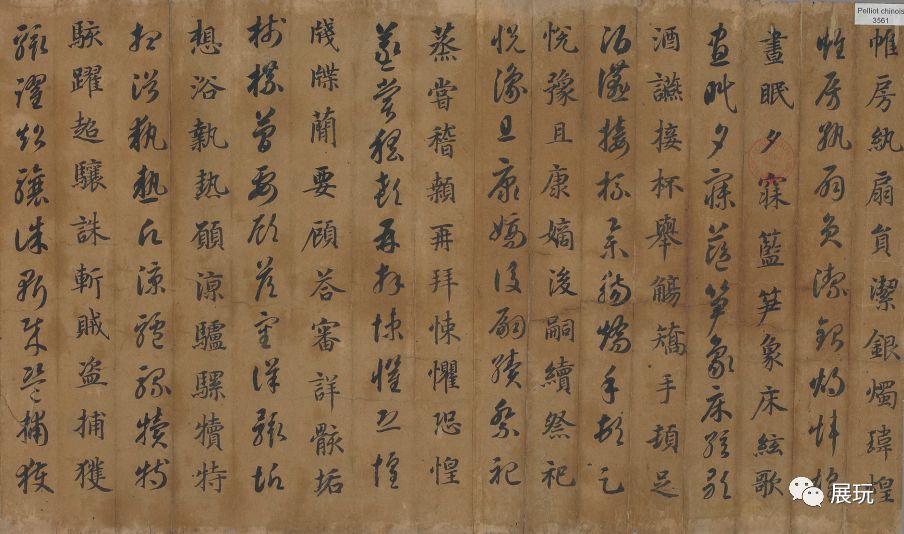 Pelliot chinois
3561
帷房紈扇員潔銀燭瑋煌
帷房紈扇員潔銀燭煒煌
晝眠夕寐藍笋象床絃歌
晝眠夕寐藍笋象床絃歌
酒讌接杯舉觴矯手頓足
酒讌接杯舉觴矯手頓足
悅豫且康嫡後嗣續祭祀
悅豫且康嫡後嗣續祭祀
蒸嘗稽顙再拜悚懼恐惶
蒸嘗稽顙再拜悚懼恐惶
牋牒蕳要顧答審詳骸垢
牋牒蕳要顧答審詳骸垢
想浴執熱願涼驢騾犢特
想浴執熱願涼驢騾犢特
駭躍超驤誅斬賊盜捕獲
駭躍超驤誅斬賊盜捕獲
展玩